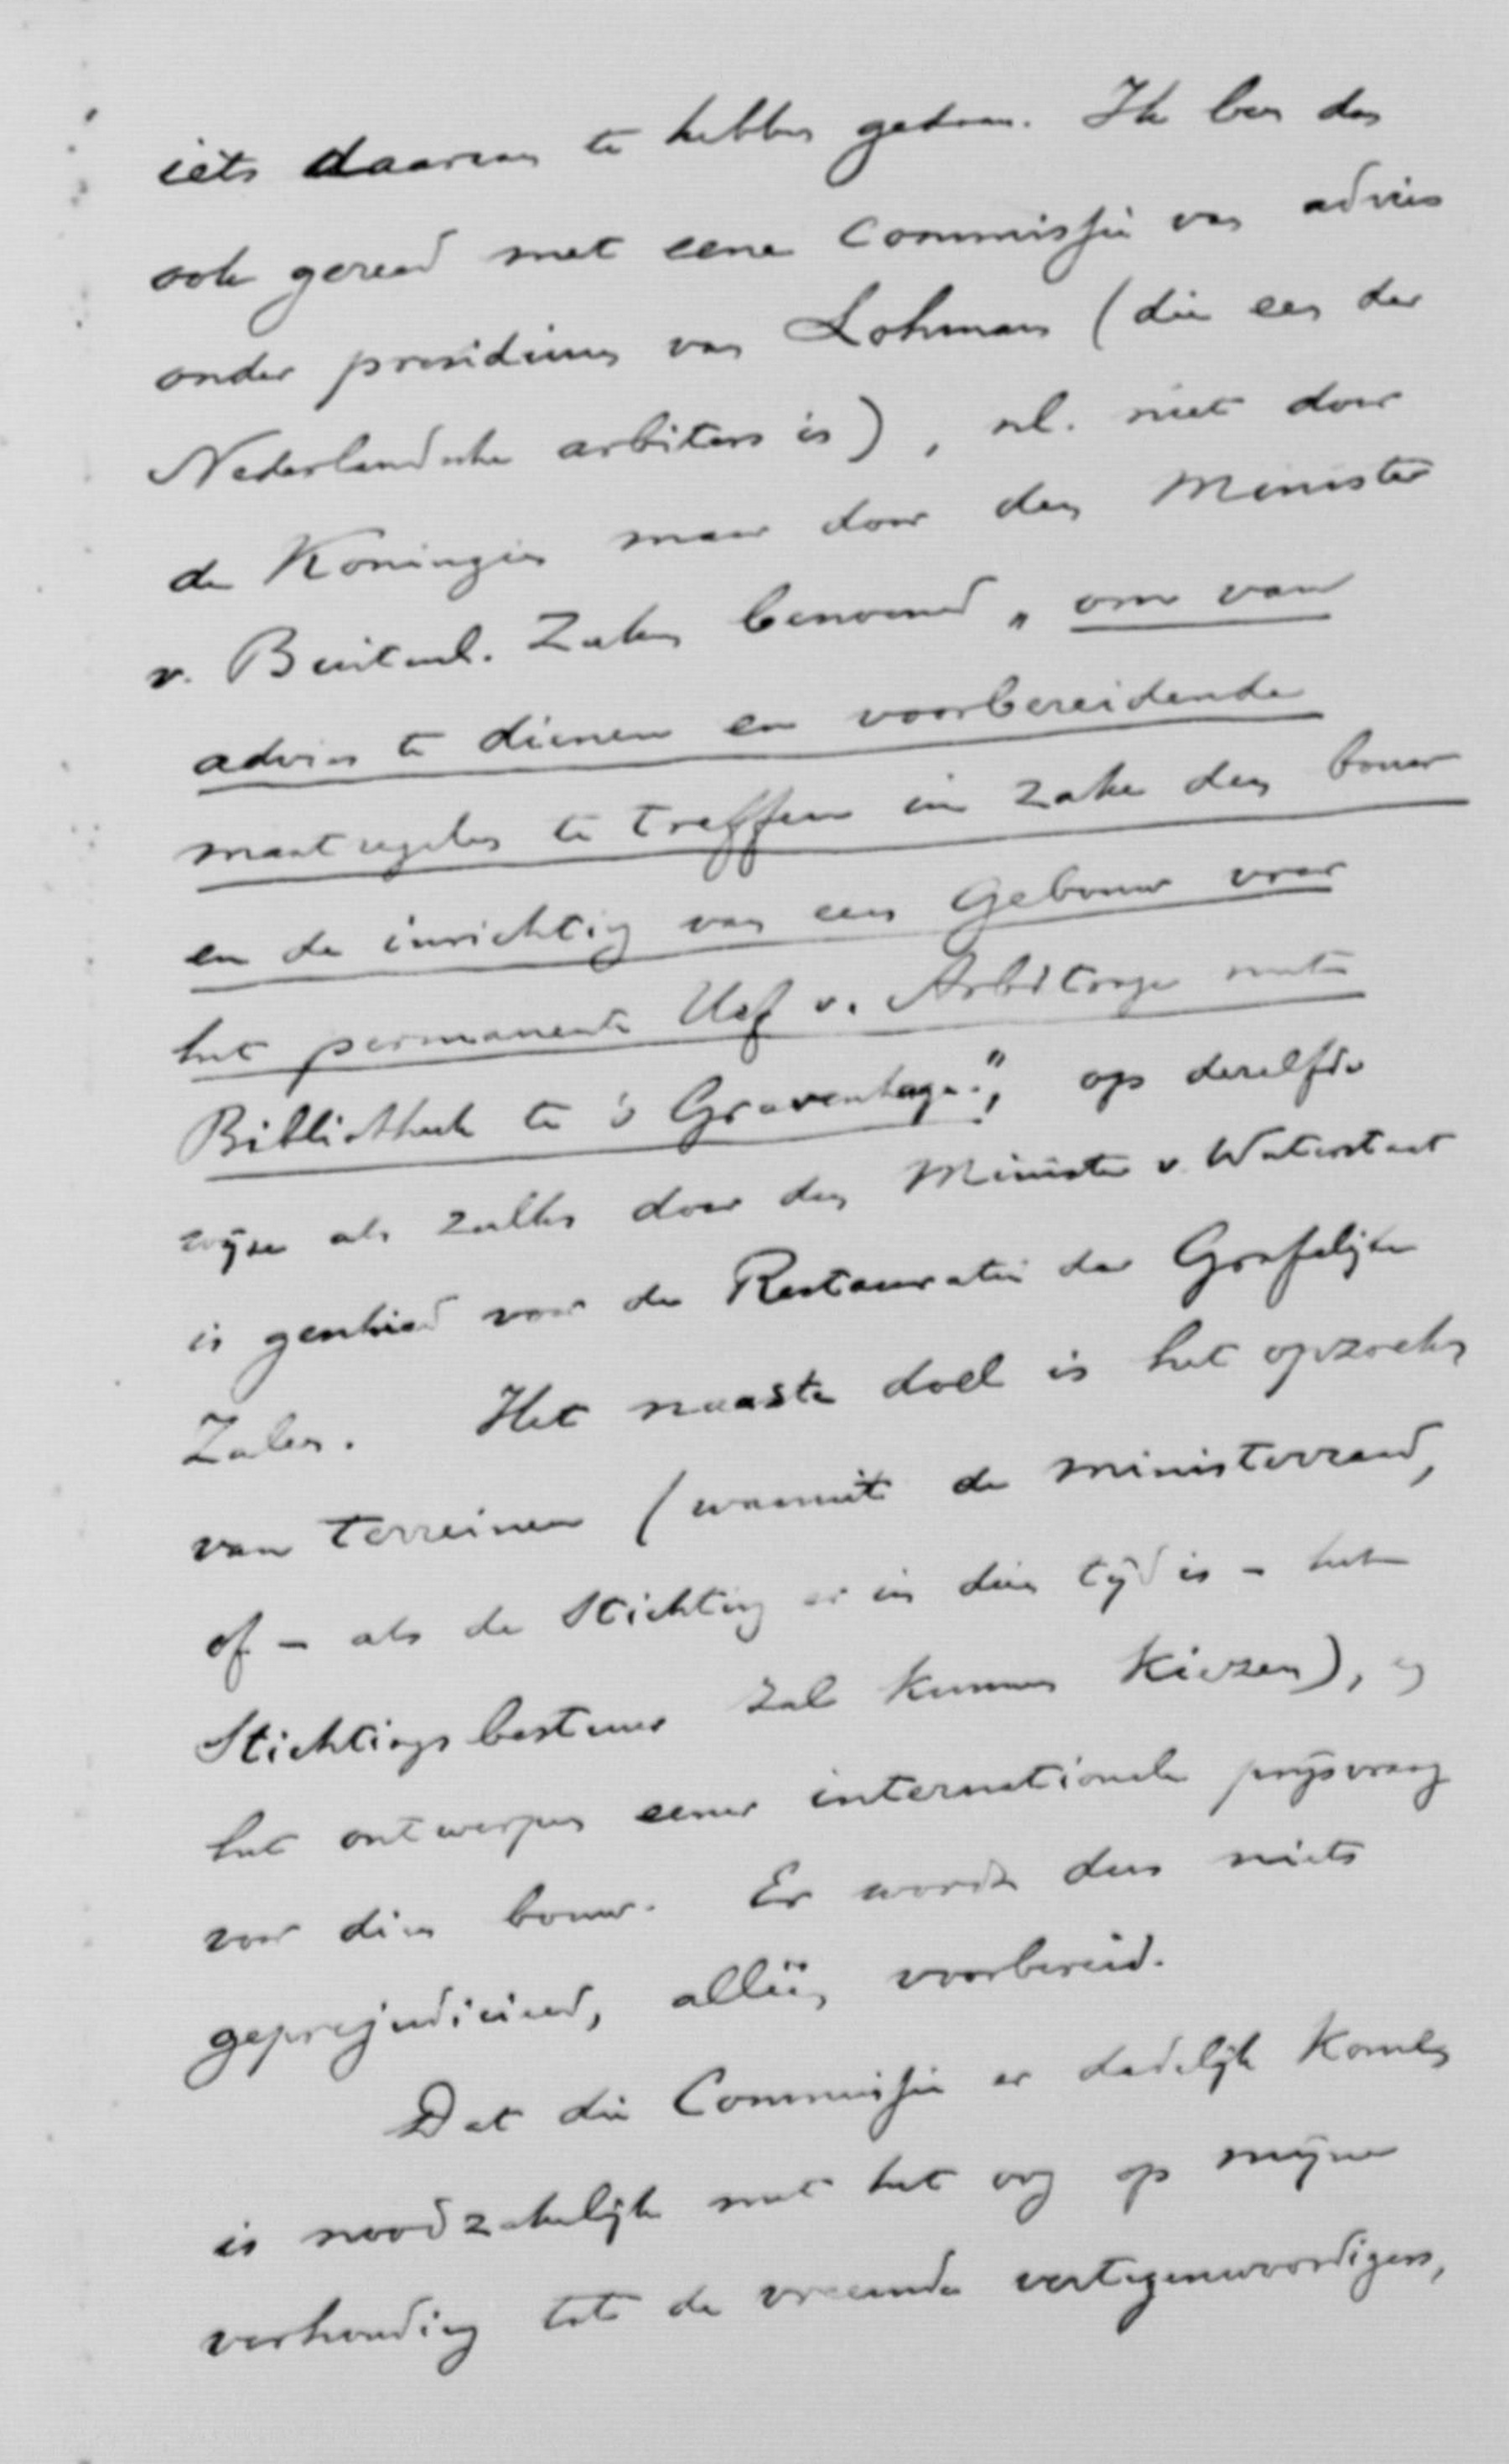 iets daarvan te hebben gedaan. Ik ben dan
ook gereed met eene Commissie van advies
onder presidium van Lohman (die een der
Nederlandsche arbiters is), nl. niet door
de Koningin maar door den Minister
v. Buitenl. Zaken benoemd „om van
advies te dienen en voorbereidende
maatregelen te treffen in zake den bouw
en de inrichting van een Gebouw voor
het permanente Hof v. Arbitrage met
Bibliotheek te 's Gravenhage.", op dezelfde
wijze als zulks door den Minister v. Waterstaat
is geschied voor de Restauratie der Grafelijke
Zalen. Het naaste doel is het opzoeken
van terreinen (waaruit de ministerraad,
of – als de Stichting er in dien tijd is – het
Stichtingsbestuur zal kunnen kiezen), en
het ontwerpen eener internationale prijsvraag
voor dien bouw. Er wordt dus niets
geprejudicieerd, alléén voorbereid.
Dat die Commissie er dadelijk kome
is noodzakelijk met het oog op mijne
verhouding tot de vreemde vertegenwoordigers,